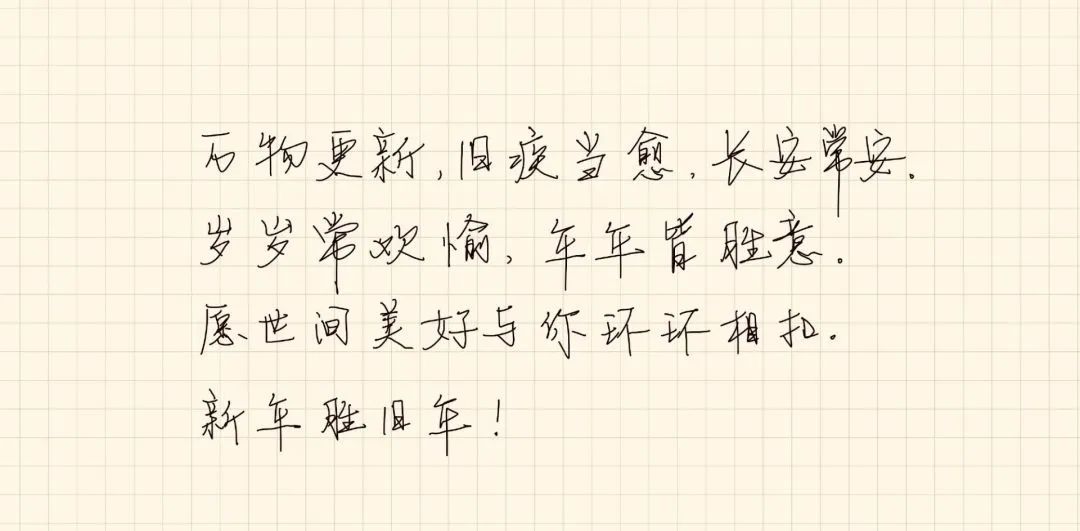 万物更新,旧疾当愈,长安常安.
岁岁常欢愉,年年皆胜意.
愿世间美好与你环环相扣.
新年胜旧年!